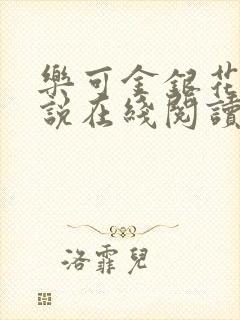 樂可金銀花
說在綫閱讀
洛霏兒